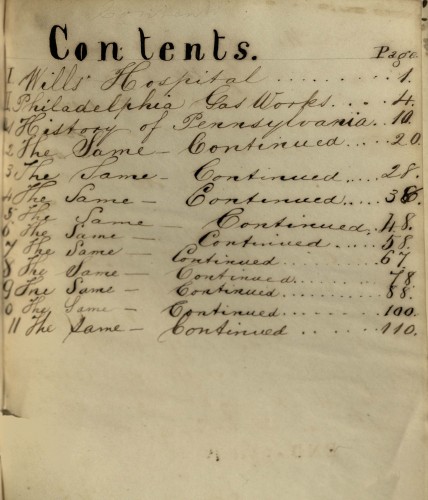 Contents.
Page.
I Wills' Hospital ......... 1.
I Philadelphia Gas Works.... 4.
1 History of Pennsylvania.. 10.
2 The Same - Continued.... 20.
3 The Same - Continued.... 28.
4 The Same - Continued.... 38.
5 The Same - Continued. 48.
6 The Same - Continued ..... 58.
7 The Same - Continued ..... 67.
8 The Same - Continued ..... 78.
9 The Same - Continued...... 88.
0 The Same - Continued ..... 100.
11 The Same - Continued ..... 110.